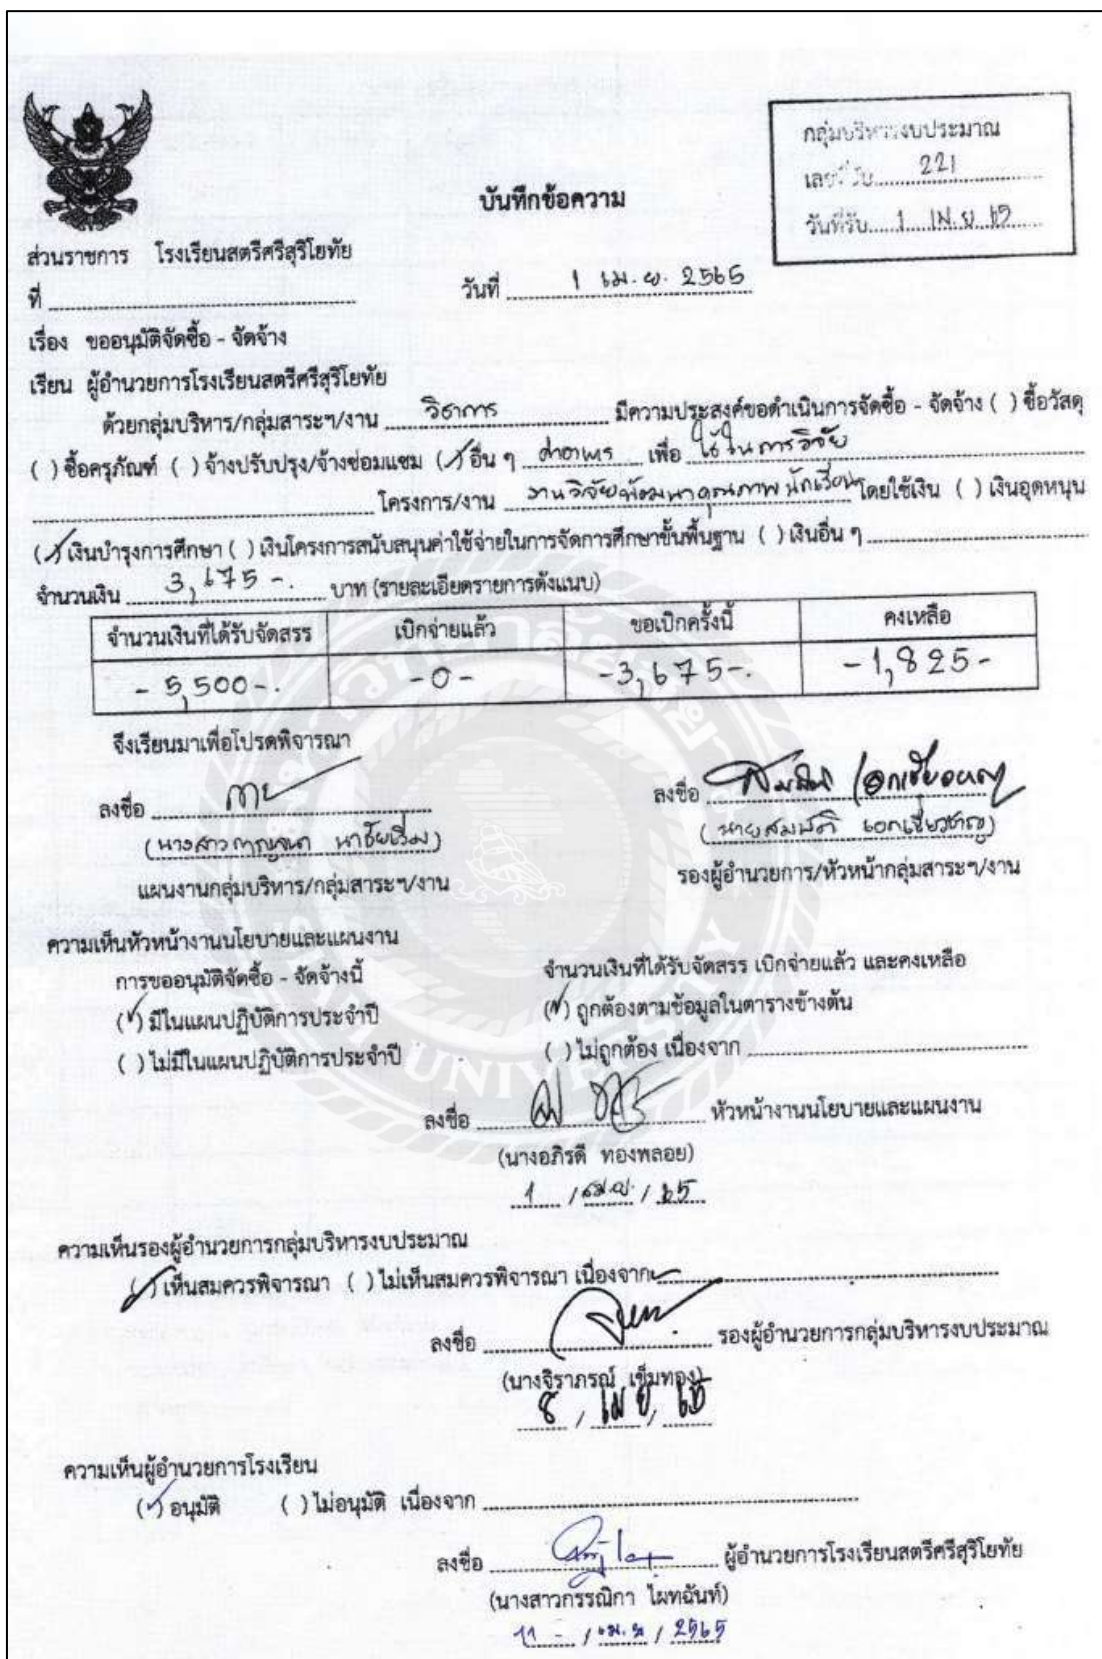 กลุ่มบริหารงบประมาณ
เลขที่รับ 221
วันที่รับ 1 เม.ย. 65
บันทึกข้อความ
ส่วนราชการ โรงเรียนสตรีศรีสุริโยทัย
ที่ วันที่ 1 เม.ย. 2565
เรื่อง ขออนุมัติจัดซื้อ - จัดจ้าง
เรียน ผู้อำนวยการโรงเรียนสตรีศรีสุริโยทัย
ด้วยกลุ่มบริหาร/กลุ่มสาระฯ/งาน วิชาการ มีความประสงค์ขอดำเนินการจัดซื้อ - จัดจ้าง ( ) ซื้อวัสดุ
( ) ซื้อครุภัณฑ์ ( ) จ้างปรับปรุง/จ้างซ่อมแซม (/) อื่น ๆ ค่าอาหาร เพื่อ ใช้ในการวิจัย
โครงการ/งาน งานวิจัยพัฒนาคุณภาพนักเรียน โดยใช้เงิน ( ) เงินอุดหนุน
(/) เงินบำรุงการศึกษา ( ) เงินโครงการสนับสนุนค่าใช้จ่ายในการจัดการศึกษาขั้นพื้นฐาน ( ) เงินอื่น ๆ
จำนวนเงิน 3,675 -. บาท (รายละเอียดรายการดังแนบ)
จำนวนเงินที่ได้รับจัดสรร เบิกจ่ายแล้ว ขอเบิกครั้งนี้ คงเหลือ
- 5,500 -. - 0 - -3,675-. -1,825-
จึงเรียนมาเพื่อโปรดพิจารณา
ลงชื่อ ลงชื่อ
(นางสาวกาญจนา) (นายสมบัติ เอกเชี่ยวชาญ)
แผนงานกลุ่มบริหาร/กลุ่มสาระฯ/งาน รองผู้อำนวยการ/หัวหน้ากลุ่มสาระฯ/งาน
ความเห็นหัวหน้างานนโยบายและแผนงาน
การขออนุมัติจัดซื้อ - จัดจ้างนี้ จำนวนเงินที่ได้รับจัดสรร เบิกจ่ายแล้ว และคงเหลือ
(✓) มีในแผนปฏิบัติการประจำปี (✓) ถูกต้องตามข้อมูลในตารางข้างต้น
( ) ไม่มีในแผนปฏิบัติการประจำปี ( ) ไม่ถูกต้อง เนื่องจาก
ลงชื่อ หัวหน้างานนโยบายและแผนงาน
(นางอภิรดี ทองพลอย)
1 / เม.ย. / 65
ความเห็นรองผู้อำนวยการกลุ่มบริหารงบประมาณ
(/) เห็นสมควรพิจารณา ( ) ไม่เห็นสมควรพิจารณา เนื่องจาก
ลงชื่อ รองผู้อำนวยการกลุ่มบริหารงบประมาณ
(นางจิราภรณ์ เข็มทอง)
8 / เม.ย. / 65
ความเห็นผู้อำนวยการโรงเรียน
(✓) อนุมัติ ( ) ไม่อนุมัติ เนื่องจาก
ลงชื่อ ผู้อำนวยการโรงเรียนสตรีศรีสุริโยทัย
(นางสาวกรรณิกา ไผทฉันท์)
11 / เม.ย. / 2565